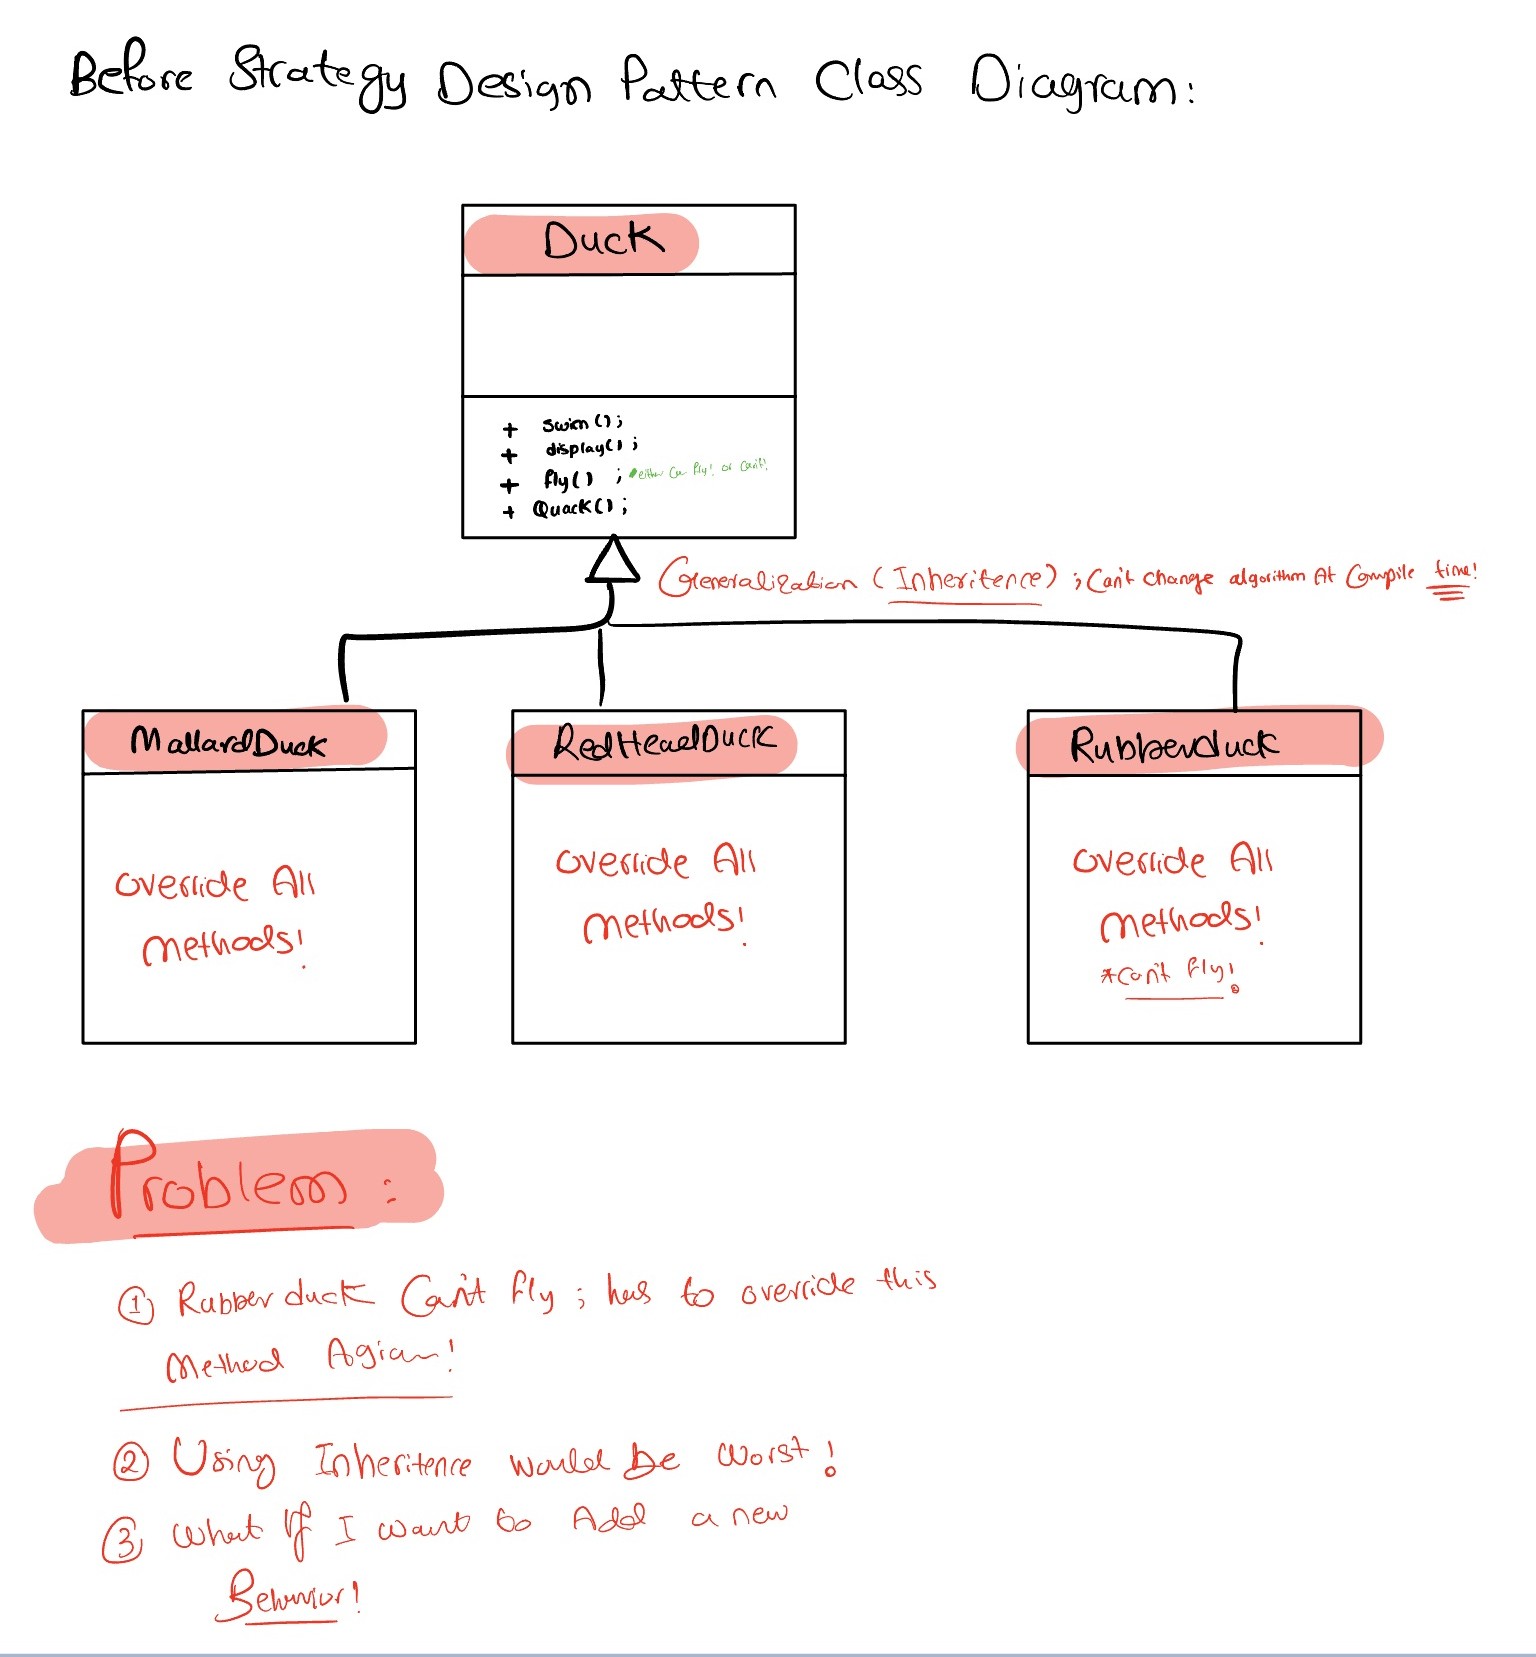 Before Strategy Design Pattern Class Diagram:
Duck
+ swim();
+ display();
+ fly() ; either can fly! or can't!
+ Quack();
Generalization (Inheritence) ; Can't change algorithm At Compile time!
MallardDuck
RedHeadDuck
Rubberduck
override All
methods!
override All
methods!
override All
methods!
*can't fly!
Problem :
① Rubber duck Can't fly ; has to override this
Method Agian!
② Using Inheritence would be worst!
③ What If I want to Add a new
Behavior!